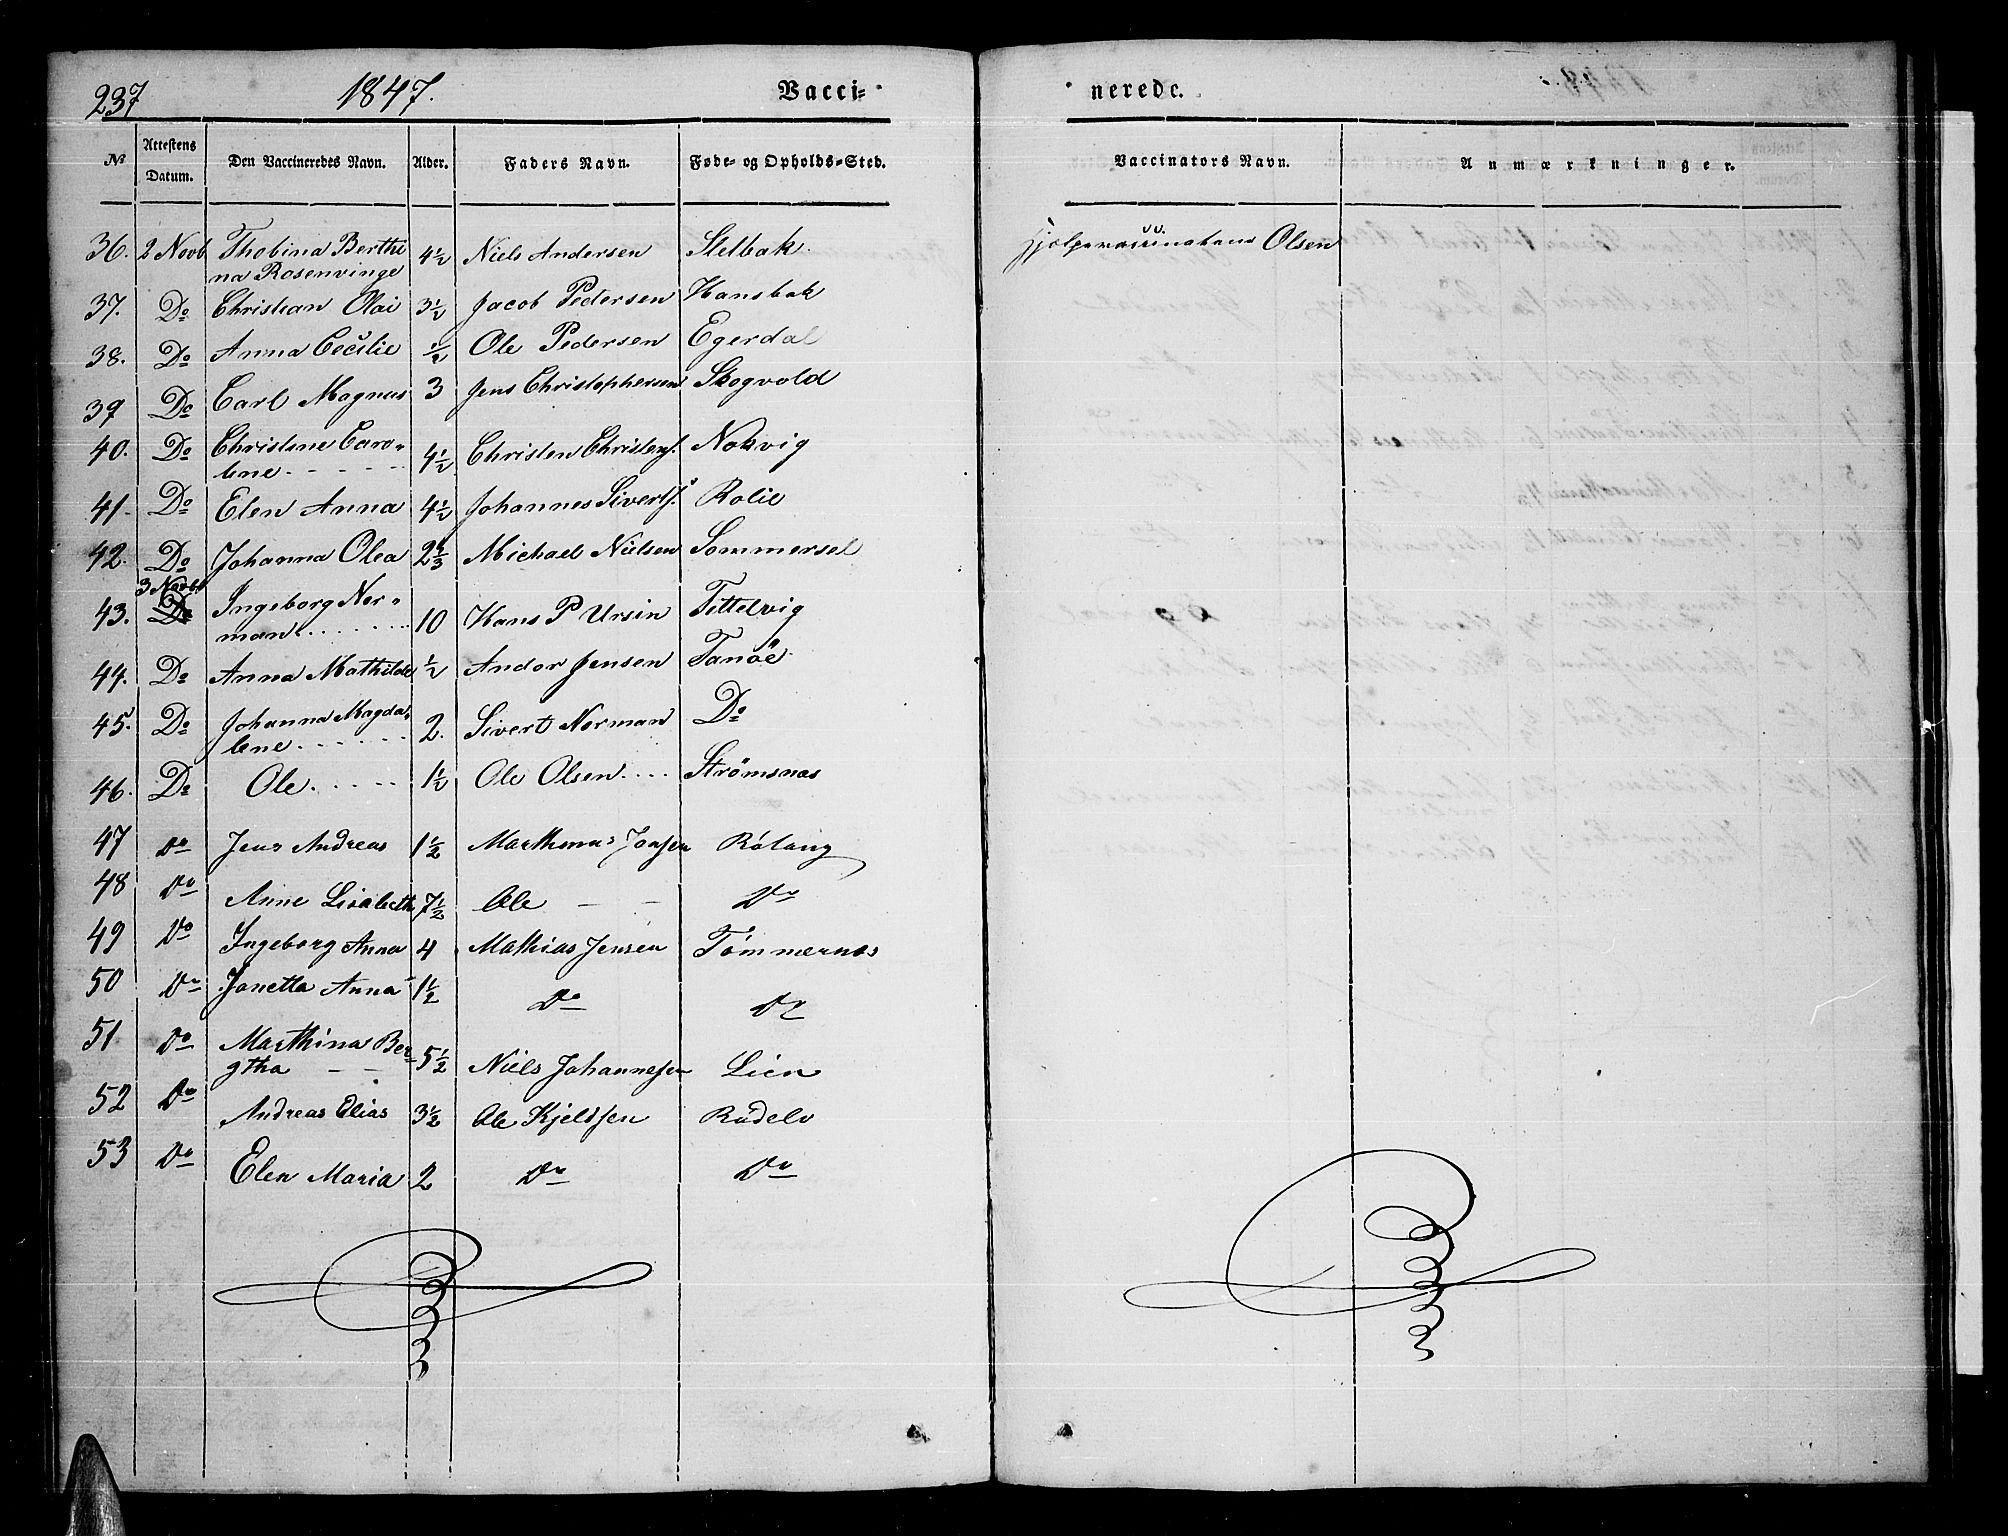 237 1847. Vacci-
nerede.
No Attestens Datum. Den Vaccineredes Navn. Alder. Faders Navn. Føde- og Opholds-Sted. Vaccinators Navn. Anmærkninger.
36. 2 Novb Thobina Berthi 4½ Niels Andersen Stelbak. Olsen
na Rosenvinge
37. Do Christian Olai 3½ Jacob Pedersen Hansbak
38. Do Anna Cecilie ½ Ole Pedersen Egerdal
39 Do Carl Magnus 3 Jens Christophersen Skogvold
40. Do Christine Caro- 4½ Christen Christens. Nokvig
lene. - - - - -
41. Do Elen Anna 4½ Johannes Siverts. Rolie
42. Do Johanna Olea 2⅔ Michael Nielsen Sommersel
43. 3 Novb Do Ingeborg Nor- 10 Hans P Ursin Tettelvig
mann. . . . . . .
44. Do Anna Mathilde ½ Andor Jensen Tanöe
45. Do Johanna Magda- 2. Sivert Norman Do
lene. - - - - -
46. Do Ole. - - - - 1½ Ole Olsen. . . . Strömsnas
47 Do Jens Andreas 1½ Marthinus Jonsen Rølang
48 Do Anne Lisabeth 7½ Ole - - Do
49 Do Ingeborg Anna 4 Mathias Jensen Tømmernes
50 Do Janetta Anna 1½ Do Do
51 Do Marthina Ber- 5½ Niels Johannesen Lien
gtha - -
52 Do Andreas Elias 3½ Ole Kjeldsen Rödelv
53 Do Elen Maria 2 Do Do